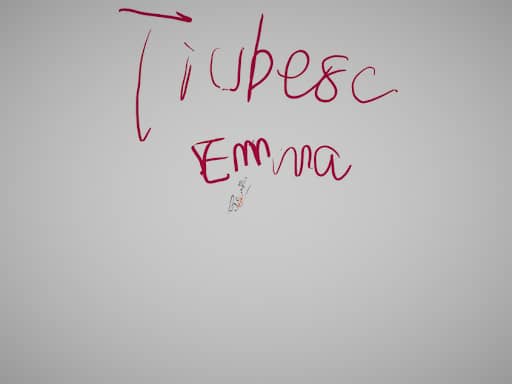 Tiubesc
Emma